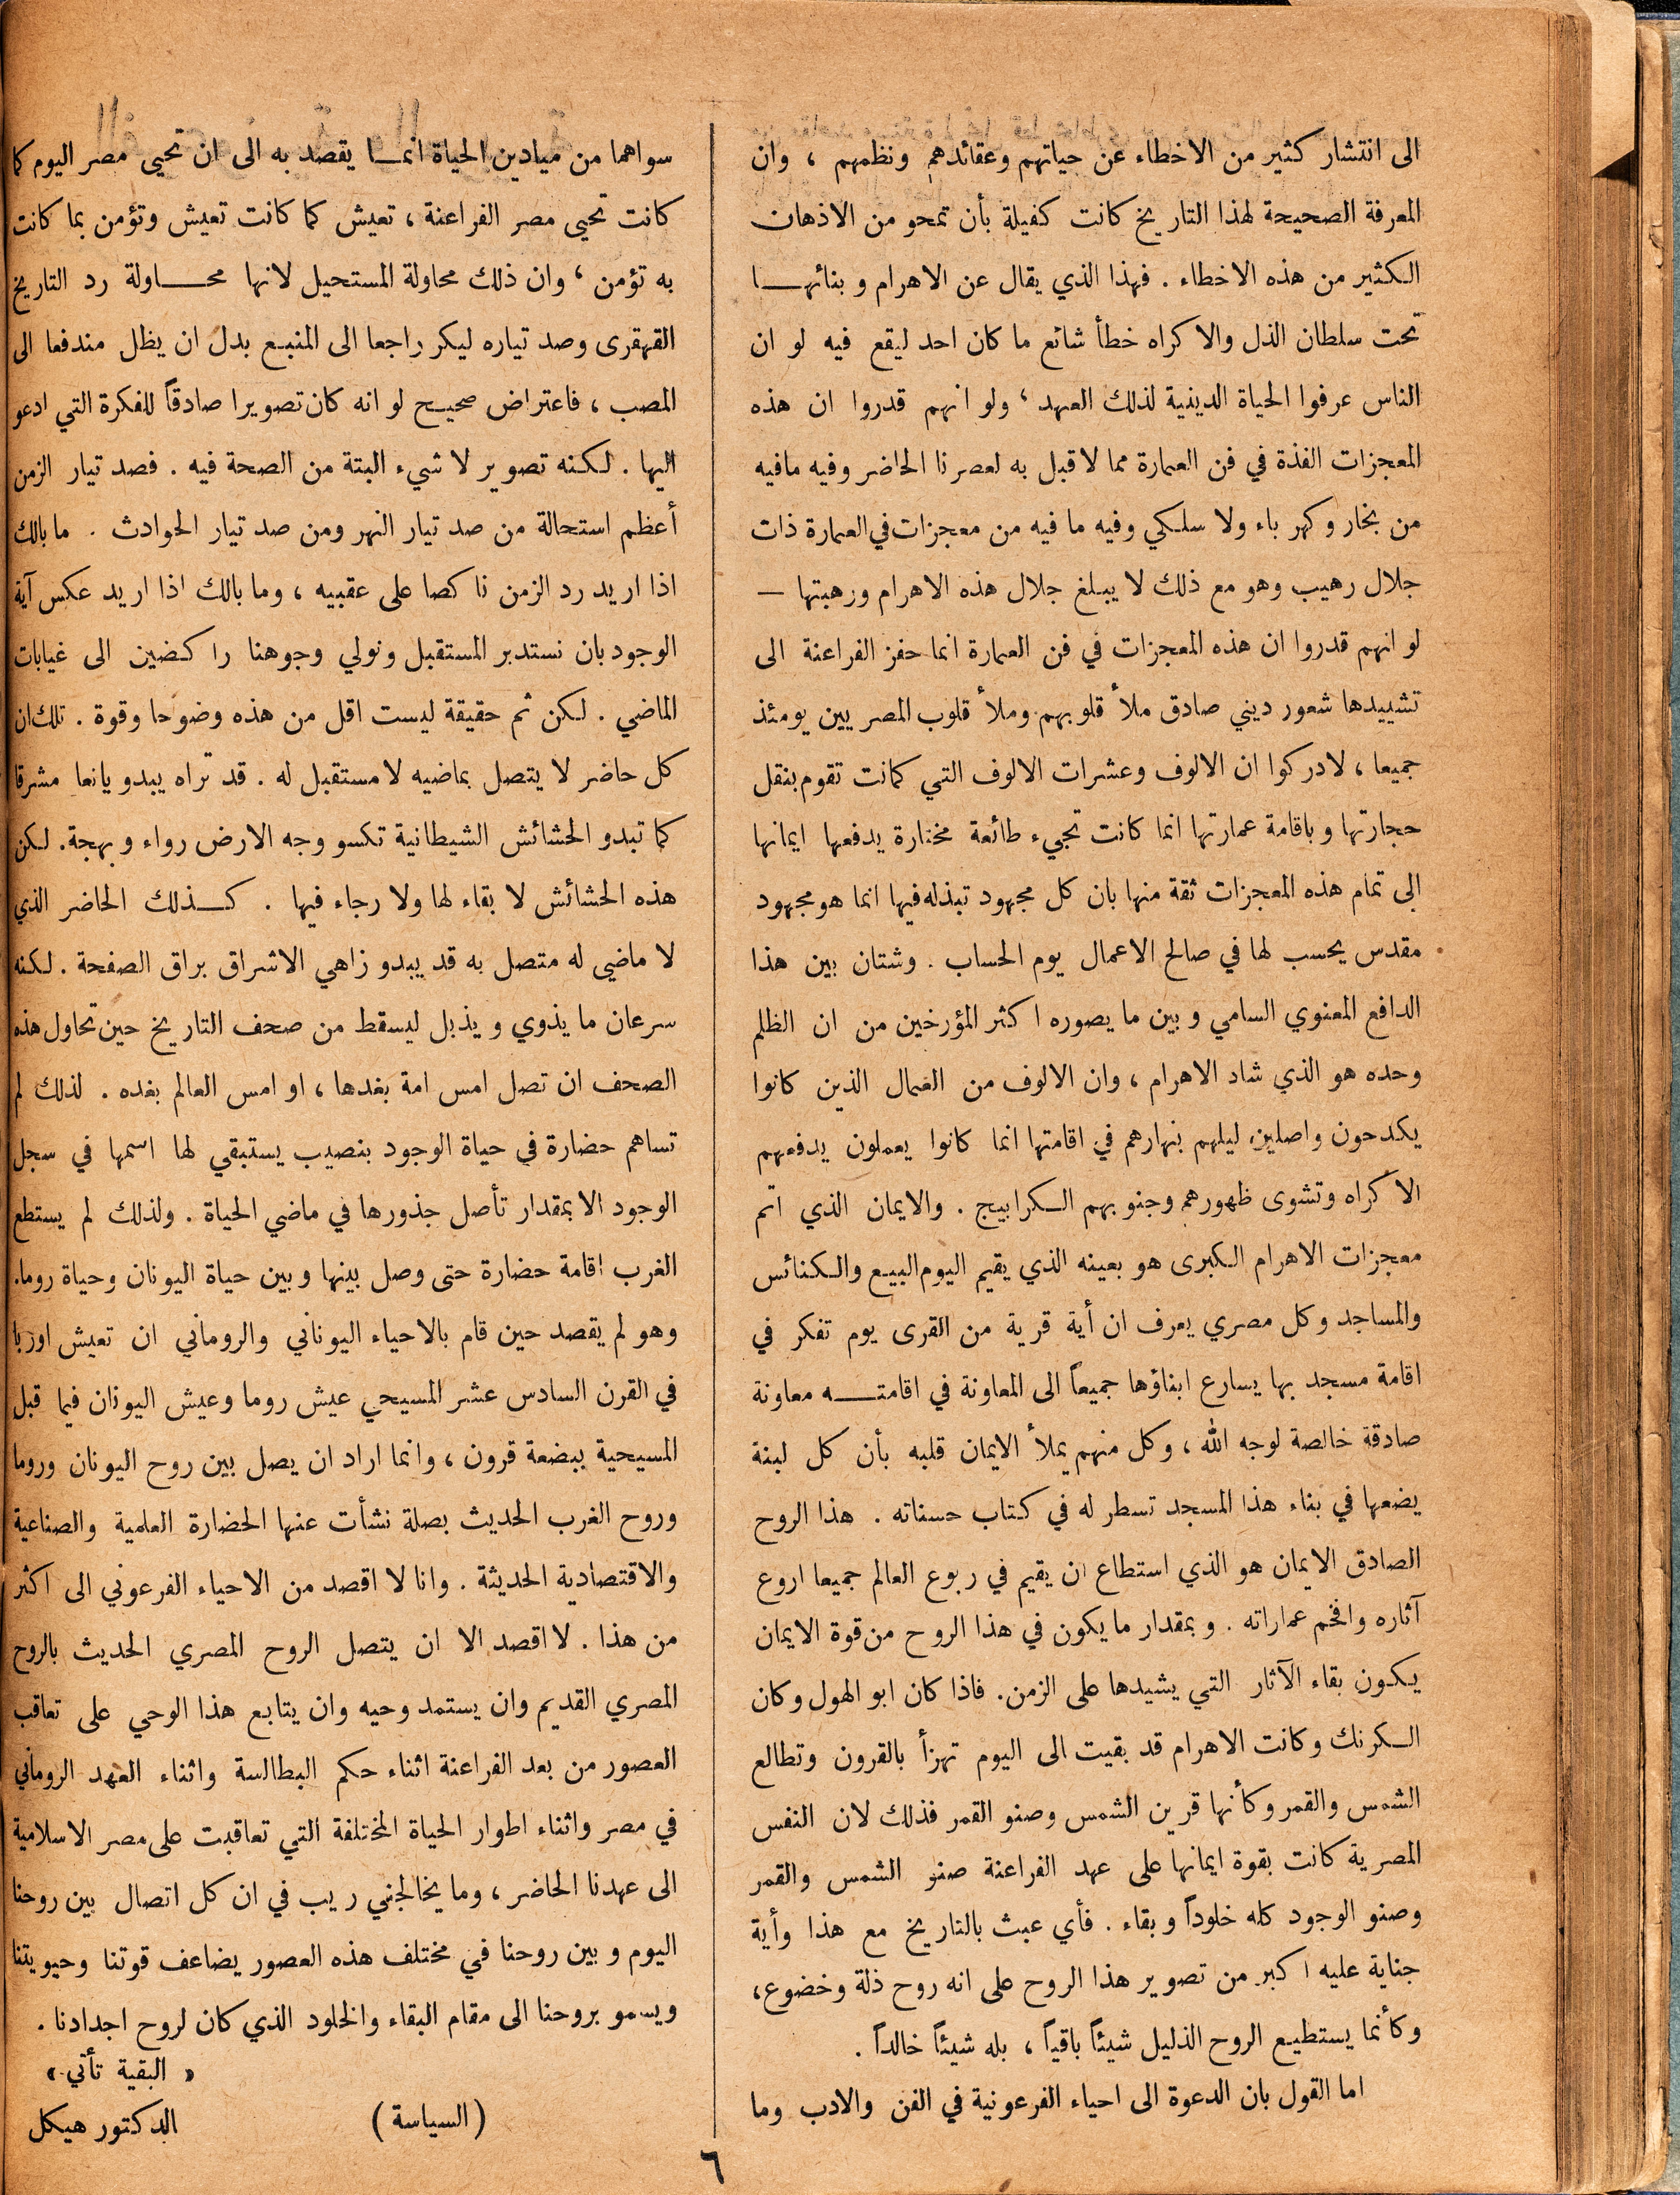 الى انتشار كثير من الاخطاء عن حياتهم وعقائدهم ونظمهم ، وان
المعرفة الصحيحة لهذا التاريخ كانت كفيلة بأن تمحو من الاذهان
الكثير من هذه الاخطاء . فهذا الذي يقال عن الاهرام وبنائهــا
تحت سلطان الذل والاكراه خطأ شائع ما كان احد ليقع فيه لو ان
الناس عرفوا الحياة الدينية لذلك العهد ، ولو انهم قدروا ان هذه
المعجزات الفذة في فن العمارة مما لا قبل به لعصرنا الحاضر وفيه مافيه
من بخار وكهرباء ولا سلكي وفيه ما فيه من معجزات في العمارة ذات
جلال رهيب وهو مع ذلك لا يبلغ جلال هذه الاهرام ورهبتها —
لو انهم قدروا ان هذه المعجزات في فن العمارة انما حفز الفراعنة الى
تشييدها شعور ديني صادق ملأ قلوبهم وملأ قلوب المصريين يومئذ
جميعا ، لادركوا ان الالوف وعشرات الالوف التي كانت تقوم بنقل
حجارتها وباقامة عمارتها انما كانت تجيء طائعة مختارة يدفعها ايمانها
الى تمام هذه المعجزات ثقة منها بان كل مجهود تبذله فيها انما هو مجهود
مقدس يحسب لها في صالح الاعمال يوم الحساب . وشتان بين هذا
الدافع المعنوي السامي وبين ما يصوره اكثر المؤرخين من ان الظلم
وحده هو الذي شاد الاهرام ، وان الالوف من العمال الذين كانوا
يكدحون واصلين ليلهم بنهارهم في اقامتها انما كانوا يعملون يدفعهم
الاكراه وتشوى ظهورهم وجنوبهم الكرابيج . والايمان الذي اتم
معجزات الاهرام الكبرى هو بعينه الذي يقيم اليوم البيع والكنائس
والمساجد وكل مصري يعرف ان أية قرية من القرى يوم تفكر في
اقامة مسجد بها يسارع ابناؤها جميعاً الى المعاونة في اقامتــه معاونة
صادقة خالصة لوجه الله ، وكل منهم يملأ الايمان قلبه بأن كل لبنة
يضعها في بناء هذا المسجد تسطر له في كتاب حسناته . هذا الروح
الصادق الايمان هو الذي استطاع ان يقيم في ربوع العالم جميعا اروع
آثاره وافخم عماراته . وبمقدار ما يكون في هذا الروح من قوة الايمان
يكون بقاء الآثار التي يشيدها على الزمن. فاذا كان ابو الهول وكان
الكرنك وكانت الاهرام قد بقيت الى اليوم تهزأ بالقرون وتطالع
الشمس والقمر وكأنها قرين الشمس وصنو القمر فذلك لان النفس
المصرية كانت بقوة ايمانها على عهد الفراعنة صنو الشمس والقمر
وصنو الوجود كله خلوداً وبقاء . فأي عبث بالتاريخ مع هذا وأية
جناية عليه اكبر من تصوير هذا الروح على انه روح ذلة وخضوع،
وكأنما يستطيع الروح الذليل شيئاً باقياً ، بله شيئاً خالداً .
اما القول بان الدعوة الى احياء الفرعونية في الفن والادب وما
سواهما من ميادين الحياة انمـا يقصد به الى ان تحيى مصر اليوم كما
كانت تحيى مصر الفراعنة ، تعيش كما كانت تعيش وتؤمن بما كانت
به تؤمن ، وان ذلك محاولة المستحيل لانها محـــاولة رد التاريخ
القهقرى وصد تياره ليكر راجعا الى المنبع بدل ان يظل مندفعا الى
المصب ، فاعتراض صحيح لو انه كان تصويرا صادقاً للفكرة التي ادعو
اليها . لكنه تصوير لا شيء البتة من الصحة فيه . فصد تيار الزمن
أعظم استحالة من صد تيار النهر ومن صد تيار الحوادث . ما بالك
اذا اريد رد الزمن ناكصا على عقبيه ، وما بالك اذا اريد عكس آية
الوجود بان نستدبر المستقبل ونولي وجوهنا راكضين الى غيابات
الماضي . لكن ثم حقيقة ليست اقل من هذه وضوحا وقوة . تلك ان
كل حاضر لا يتصل بماضيه لا مستقبل له . قد تراه يبدو يانعا مشرقا
كما تبدو الحشائش الشيطانية تكسو وجه الارض رواء وبهجة. لكن
هذه الحشائش لا بقاء لها ولا رجاء فيها . كـذلك الحاضر الذي
لا ماضي له متصل به قد يبدو زاهي الاشراق براق الصفحة . لكنه
سرعان ما يذوي ويذبل ليسقط من صحف التاريخ حين تحاول هذه
الصحف ان تصل امس امة بغدها ، او امس العالم بغده . لذلك لم
تساهم حضارة في حياة الوجود بنصيب يستبقي لها اسمها في سجل
الوجود الا بمقدار تأصل جذورها في ماضي الحياة . ولذلك لم يستطع
الغرب اقامة حضارة حتى وصل بينها وبين حياة اليونان وحياة روما.
وهو لم يقصد حين قام بالاحياء اليوناني والروماني ان تعيش اوربا
في القرن السادس عشر المسيحي عيش روما وعيش اليونان فيما قبل
المسيحية ببضعة قرون ، وانما اراد ان يصل بين روح اليونان وروما
وروح الغرب الحديث بصلة نشأت عنها الحضارة العلمية والصناعية
والاقتصادية الحديثة . وانا لا اقصد من الاحياء الفرعوني الى اكثر
من هذا . لا اقصد الا ان يتصل الروح المصري الحديث بالروح
المصري القديم وان يستمد وحيه وان يتابع هذا الوحي على تعاقب
العصور من بعد الفراعنة اثناء حكم البطالسة واثناء العهد الروماني
في مصر واثناء اطوار الحياة المختلفة التي تعاقبت على مصر الاسلامية
الى عهدنا الحاضر ، وما يخالجني ريب في ان كل اتصال بين روحنا
اليوم وبين روحنا في مختلف هذه العصور يضاعف قوتنا وحيويتنا
ويسمو بروحنا الى مقام البقاء والخلود الذي كان لروح اجدادنا .
« البقية تأتي »
(السياسة) الدكتور هيكل
٦